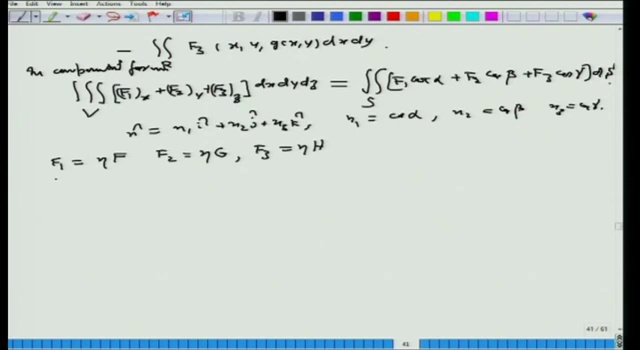 File Edit View Insert Actions Tools Help
− ∬_R F₃ (x, y, g(x,y)) dx dy.
In component form
∭_V [(F₁)_x + (F₂)_y + (F₃)_z] dx dy dz = ∬_S [F₁ cos α + F₂ cos β + F₃ cos γ] ds
n̂ = n₁ î + n₂ ĵ + n₃ k̂, n₁ = cos α, n₂ = cos β n₃ = cos γ.
F₁ = ηF F₂ = ηG, F₃ = ηH
41 / 61
41